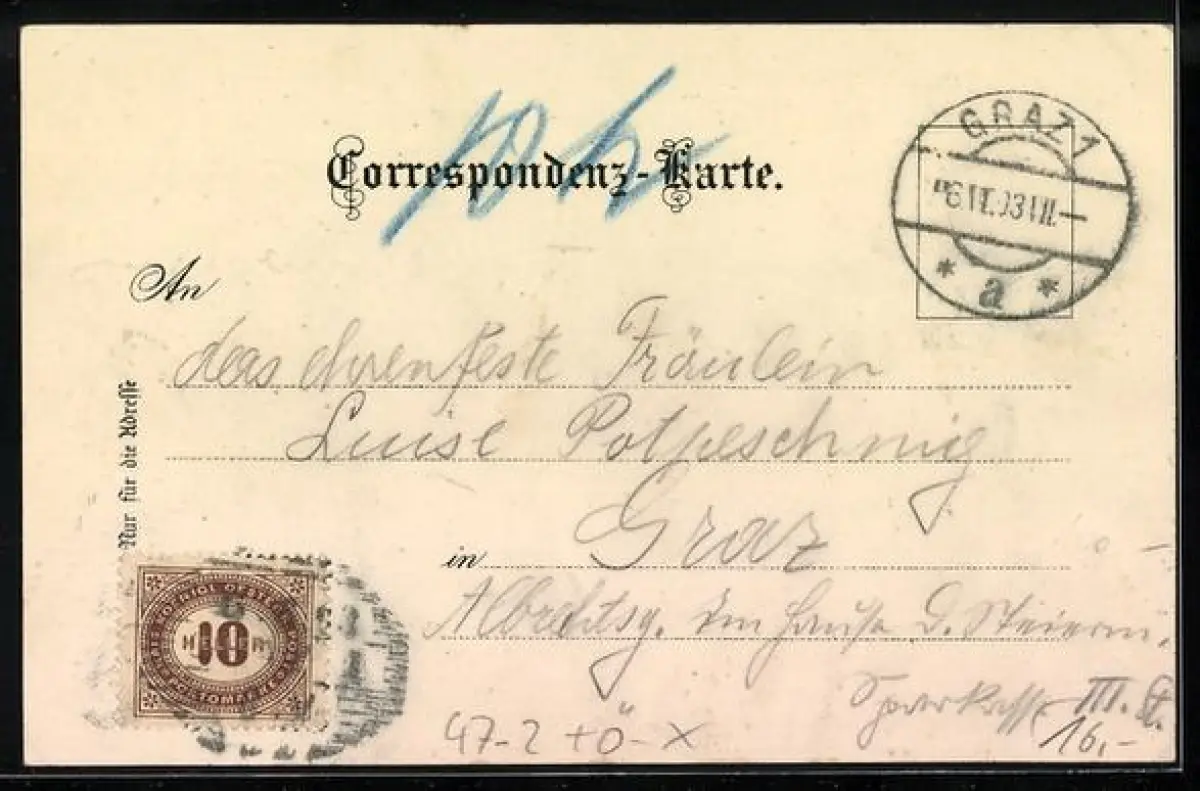 10 h
Correspondenz-Karte.
GRAZ 1
a
An
das ehrenfeste Fräulein
Luise Potpeschnig
in Graz
Albrechtsg. Im Hause d. Steierm.
Sparkasse III. St.
Nur für die Adresse
10
PORTOMARKE
47-2 + Ö - X
16,-